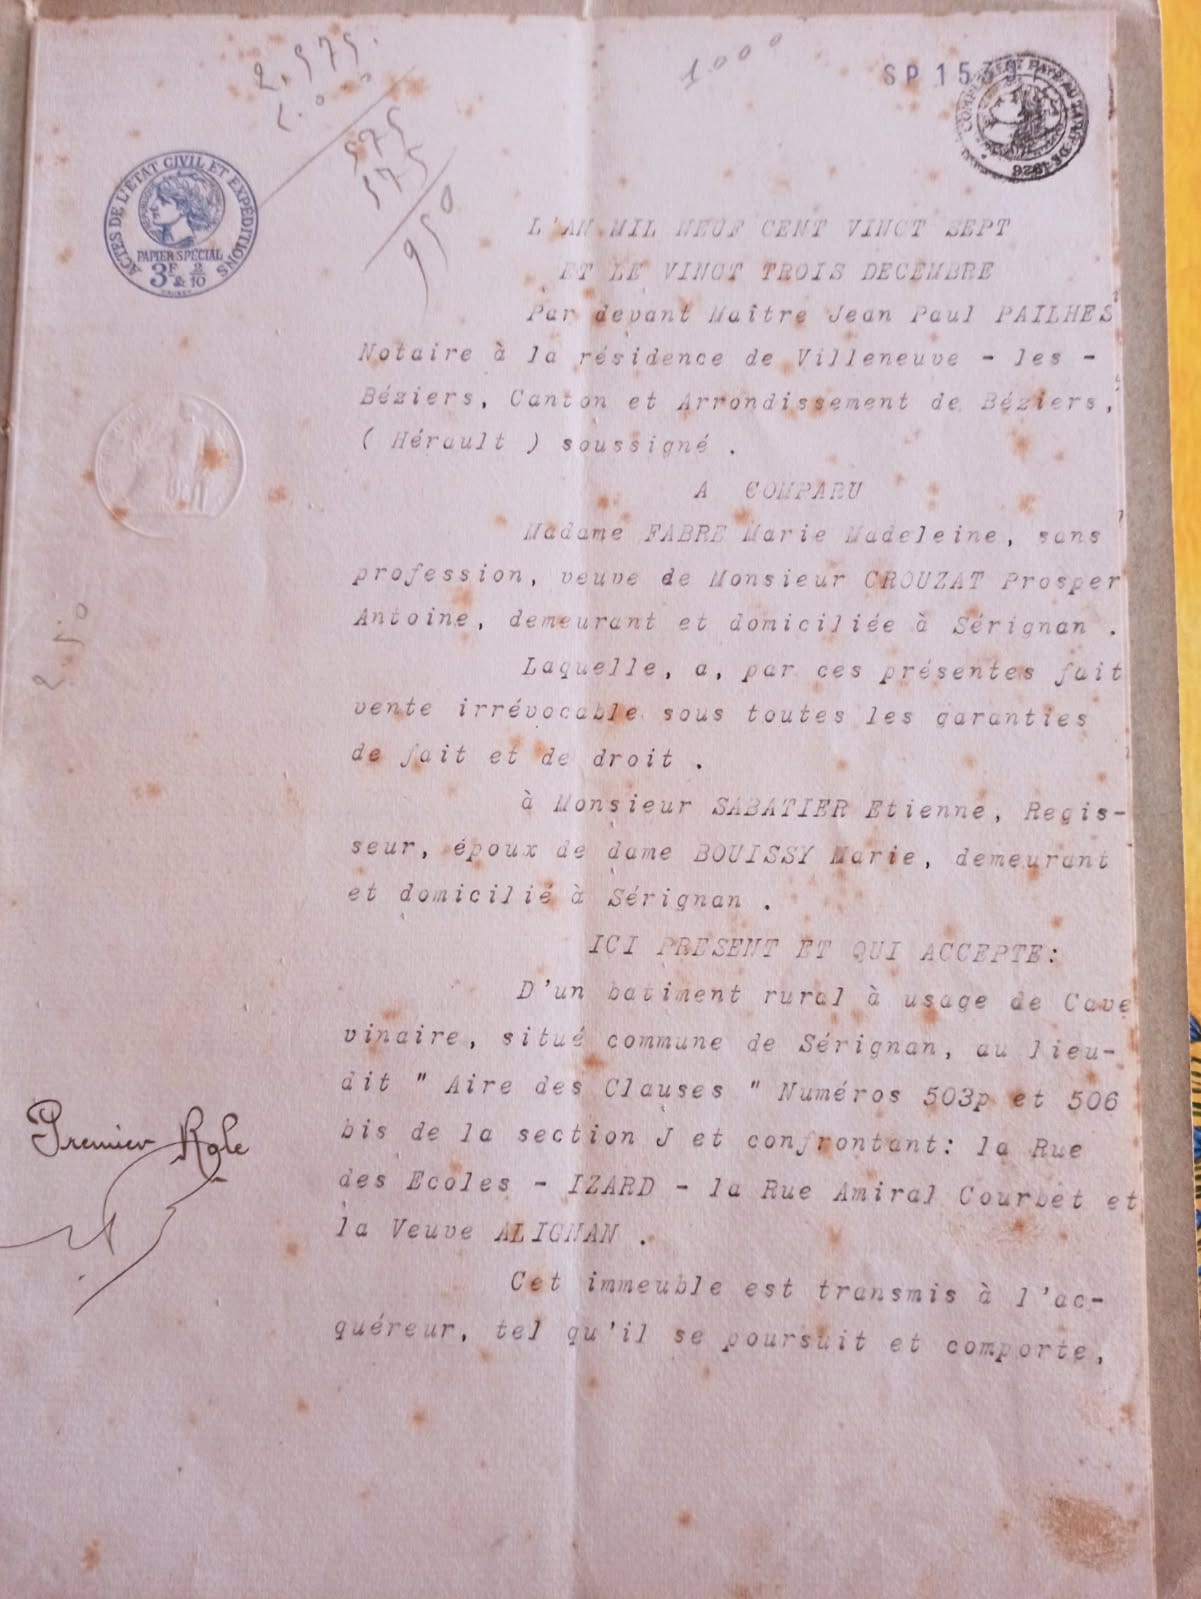 2.575.
1000
SP 153
COMPLEMENT
1926
575
575
950
ACTES DE L'ETAT CIVIL ET EXPÉDITIONS
PAPIER SPECIAL
3F & 2/10
L'AN MIL NEUF CENT VINGT SEPT
ET LE VINGT TROIS DECEMBRE
Par devant Maître Jean Paul PAILHES
Notaire à la résidence de Villeneuve - les -
Béziers, Canton et Arrondissement de Béziers,
( Hérault ) soussigné .
A COMPARU
Madame FABRE Marie Madeleine, sans
profession, veuve de Monsieur CROUZAT Prosper
Antoine, demeurant et domiciliée à Sérignan .
Laquelle, a, par ces présentes fait
vente irrévocable sous toutes les garanties
de fait et de droit .
à Monsieur SABATIER Etienne, Regis-
seur, époux de dame BOUISSY Marie, demeurant
et domicilié à Sérignan .
ICI PRESENT ET QUI ACCEPTE:
D'un batiment rural à usage de Cave
vinaire, situé commune de Sérignan, au lieu-
dit " Aire des Clauses " Numéros 503p et 506
bis de la section J et confrontant: la Rue
des Ecoles - IZARD - la Rue Amiral Courbet et
la Veuve ALIGNAN .
Cet immeuble est transmis à l'ac-
quéreur, tel qu'il se poursuit et comporte,
250
Premier Role